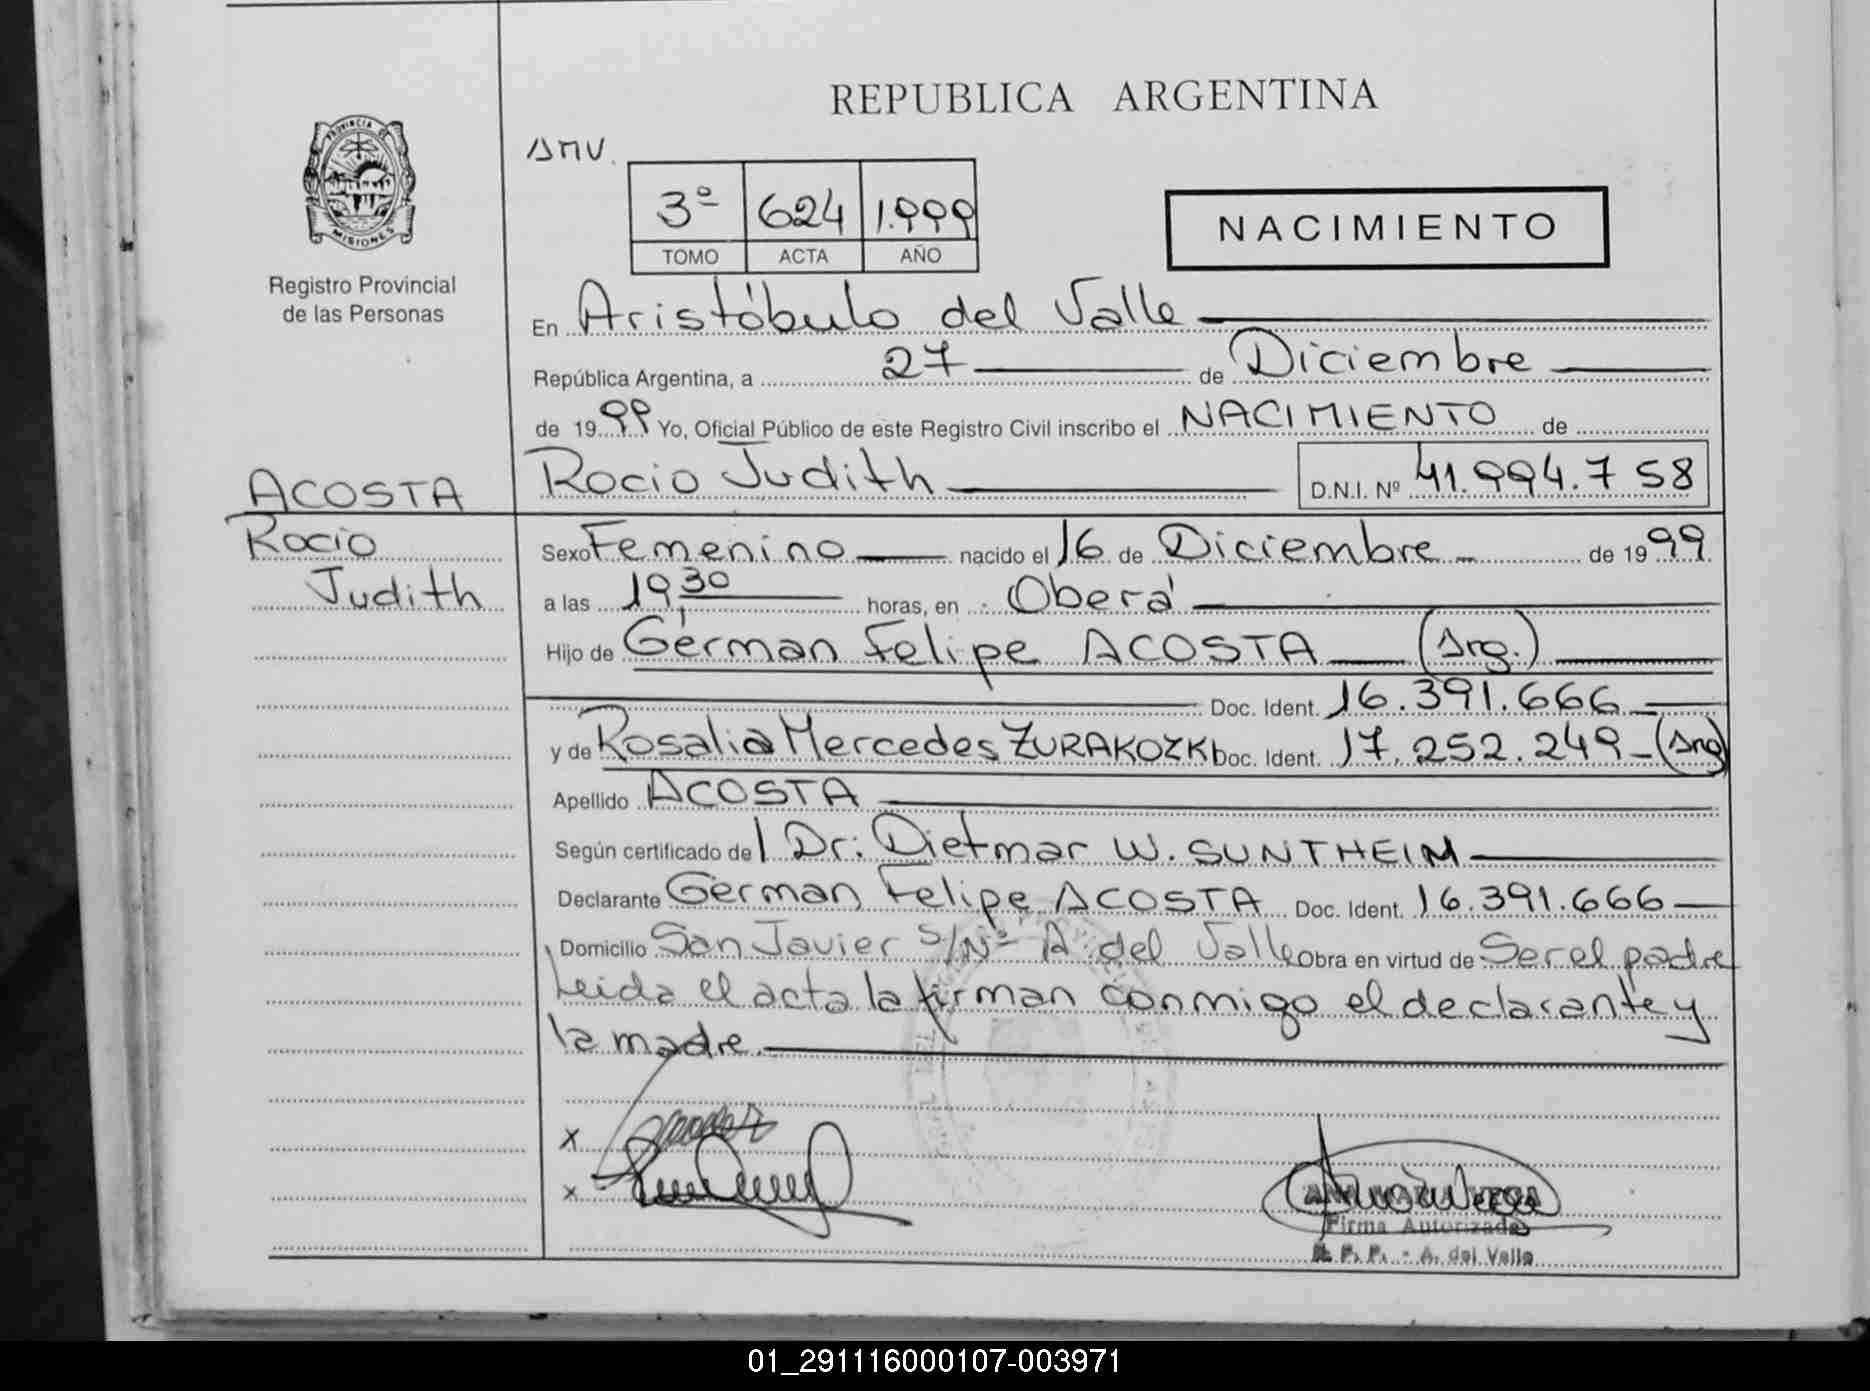 REPUBLICA ARGENTINA
AMV.
3º 624 1.999
TOMO ACTA AÑO
NACIMIENTO
PROVINCIA DE
MISIONES
Registro Provincial
de las Personas
En Aristóbulo del Valle
República Argentina, a 27 de Diciembre
de 1999 Yo, Oficial Público de este Registro Civil inscribo el NACIMIENTO de
ACOSTA
Rocio
Judith
Rocio Judith D.N.I. Nº 41.994.758
Sexo Femenino nacido el 16 de Diciembre de 1999
a las 19,30 horas, en Oberá
Hijo de Germán Felipe ACOSTA (Arg.)
Doc. Ident. 16.391.666
y de Rosalia Mercedes ZURAKOZKI Doc. Ident. 17.252.249 (Arg)
Apellido ACOSTA
Según certificado del Dr. Dietmar W. SUNTHEIM
Declarante Germán Felipe ACOSTA Doc. Ident. 16.391.666
Domicilio San Javier S/Nº A. del Valle Obra en virtud de Ser el padre
Leida el acta la firman conmigo el declarante y
la madre.
x
x
Firma Autorizada
R. P. P. - A. del Valle
01_291116000107-003971